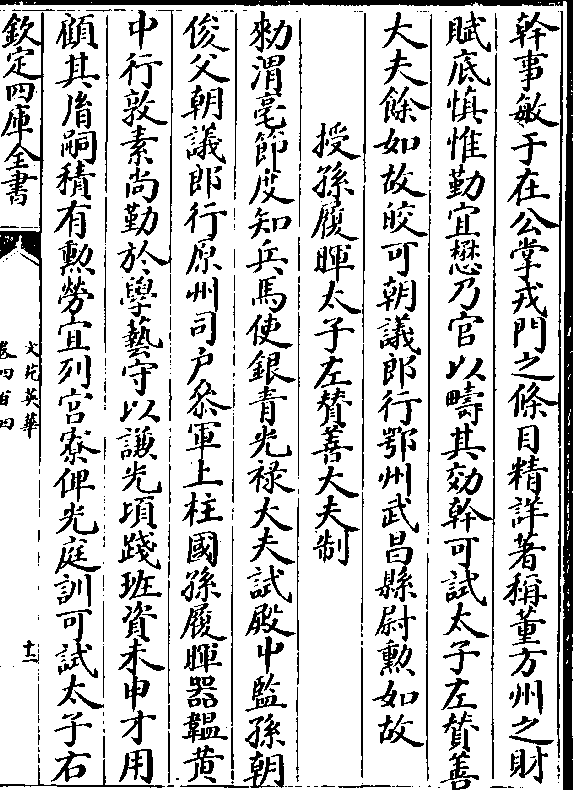 幹事敏于在公掌戎門之條目精詳著稱董方州之財
賦底慎惟勤宜懋乃官以疇其効幹可試太子左賛善
大夫餘如故皎可朝議郎行鄂州武昌縣尉勲如故
授孫履暉太子左賛善大夫制
勑渭亳節度知兵馬使銀青光禄大夫試殿中監孫朝
俊父朝議郎行原州司户叅軍上柱國孫履暉器韞黄
中行敦素尚勤於學藝守以謙光頃踐班資未申才用
顧其胤嗣積有勲勞宜列宫寮俾光庭訓可試太子右
欽定四庫全書
文苑英華
卷四百四
十二